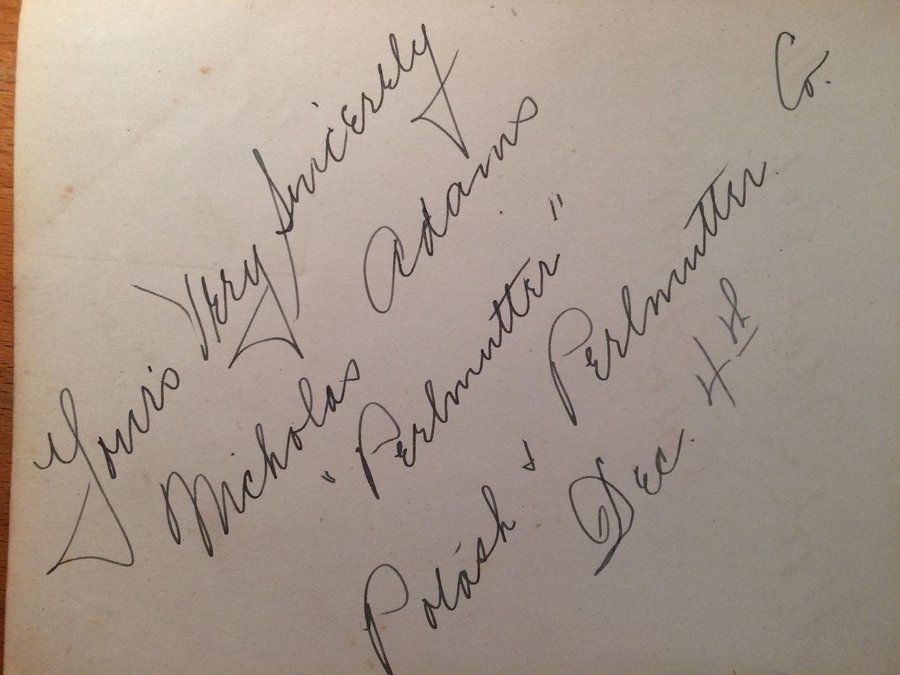 Your's Very Sincerely
Nicholas Adams
"Perlmutter"
Potash & Perlmutter Co.
Dec. 4th